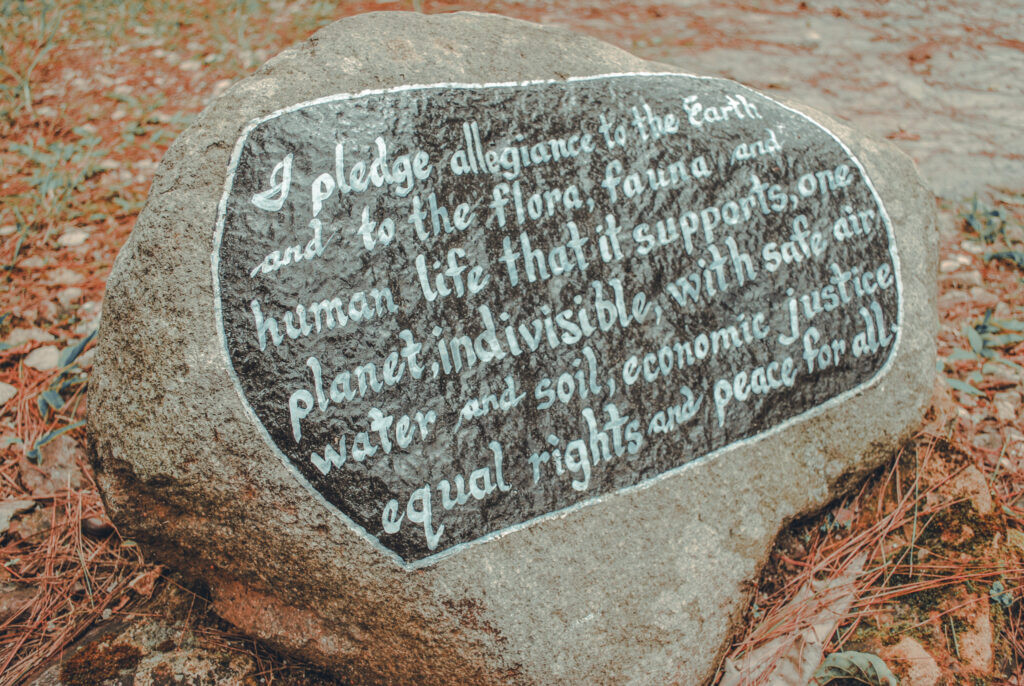 I pledge allegiance to the Earth
and to the flora, fauna and
human life that it supports, one
planet, indivisible, with safe air
water and soil, economic justice
equal rights and peace for all.